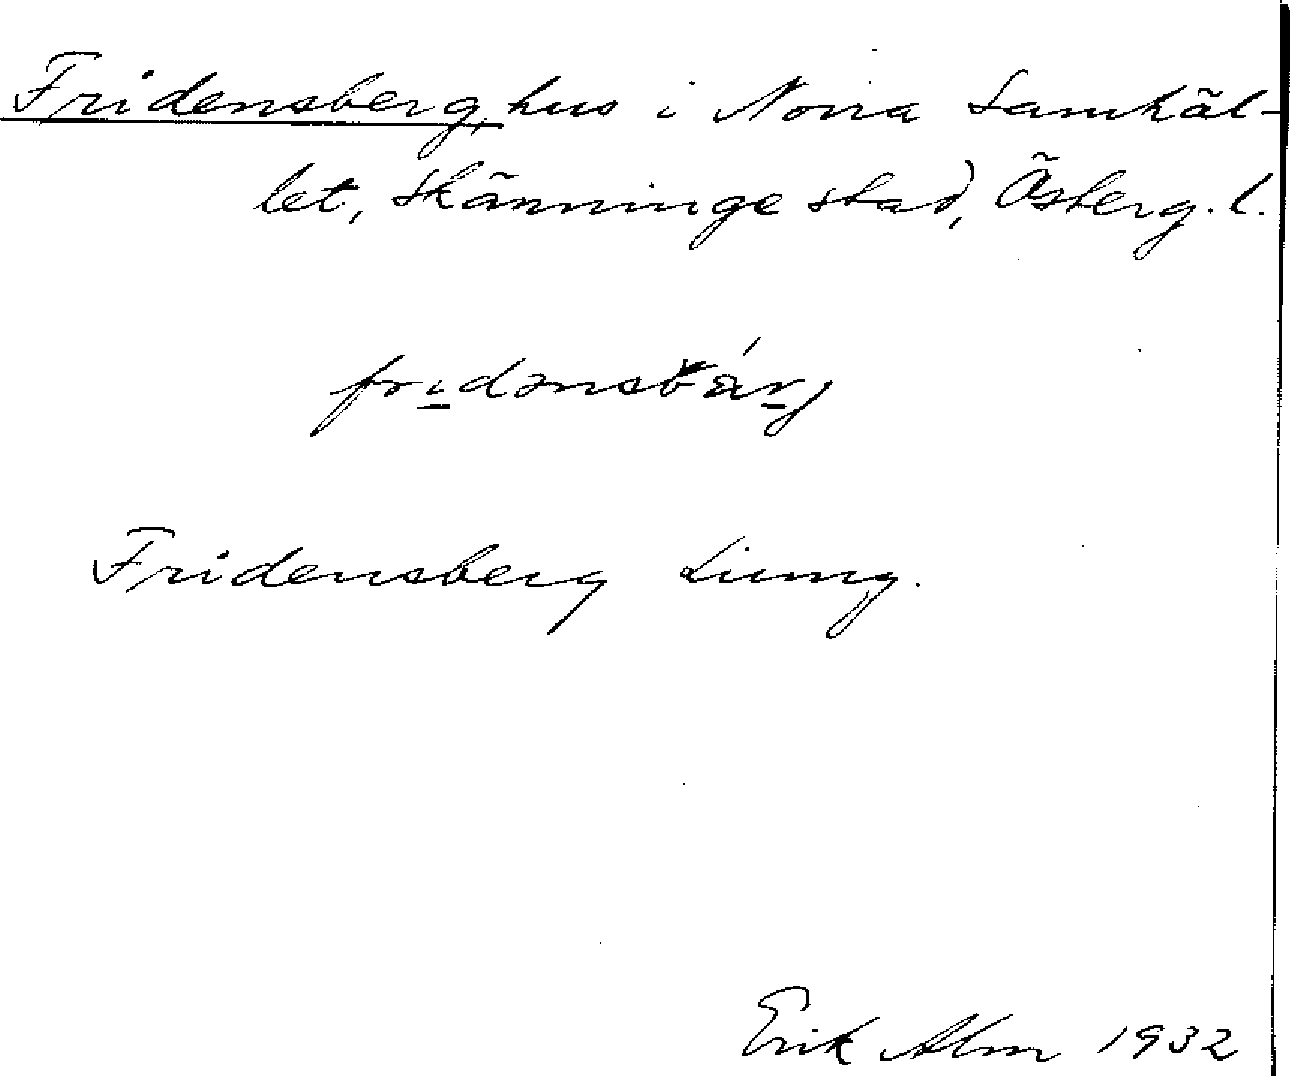 Fridensberg, hus i Norra Samhäl-
let, Skänninge stad, Österg. l.
fridensbärj
Fridensberg Liung.
Erik Alm 1932